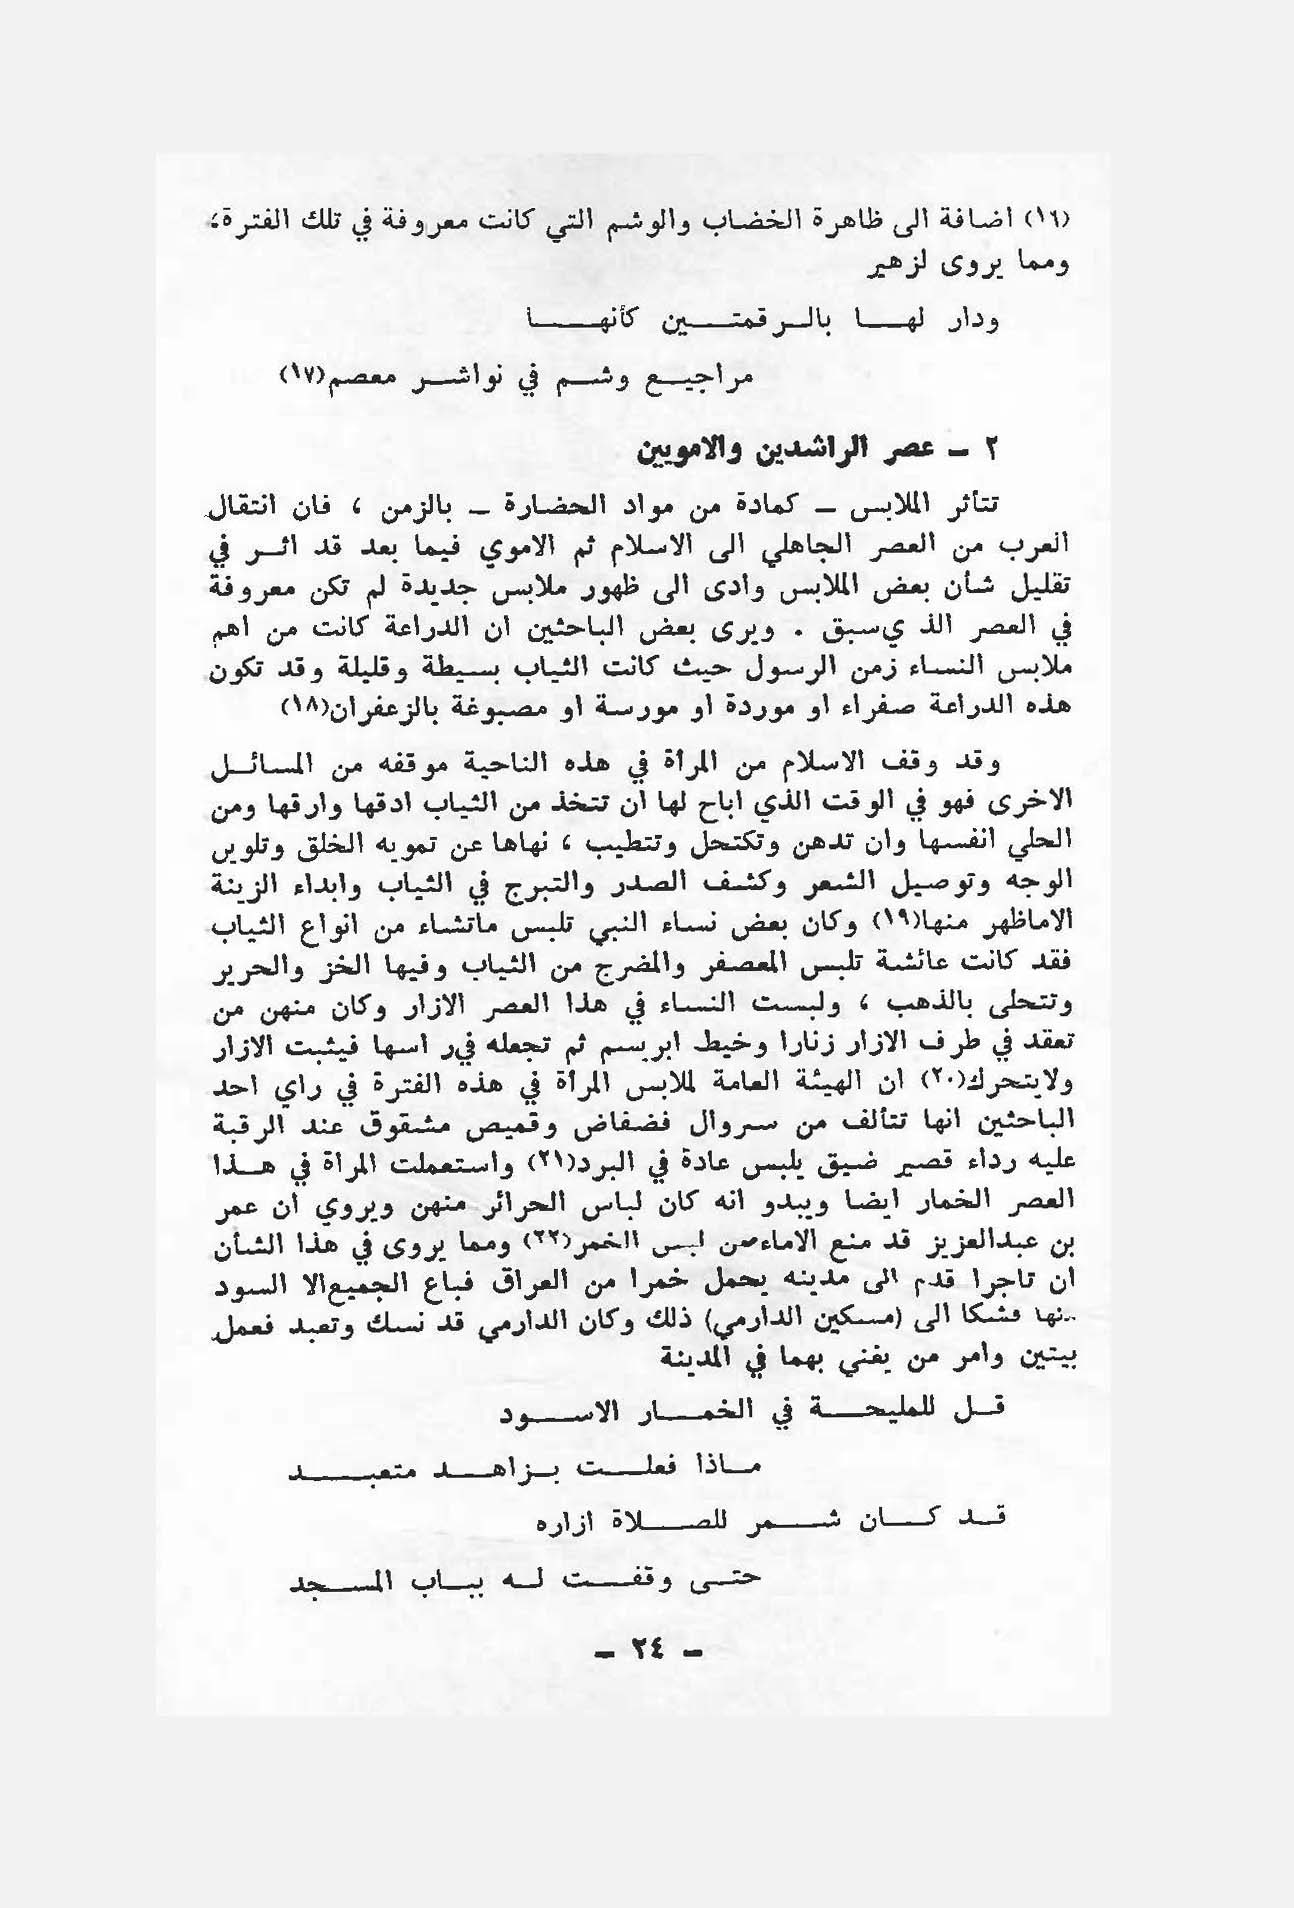 (١٦) اضافة الى ظاهرة الخضاب والوشم التي كانت معروفة في تلك الفترة،
ومما يروى لزهير
ودار لها بالرقمتين كأنها
مراجيع وشم في نواشر معصم(١٧)
٢ ـ عصر الراشدين والامويين
تتأثر الملابس ـ كمادة من مواد الحضارة ـ بالزمن ، فان انتقال
العرب من العصر الجاهلي الى الاسلام ثم الاموي فيما بعد قد اثر في
تقليل شأن بعض الملابس وادى الى ظهور ملابس جديدة لم تكن معروفة
في العصر الذ يسبق . ويرى بعض الباحثين ان الدراعة كانت من اهم
ملابس النساء زمن الرسول حيث كانت الثياب بسيطة وقليلة وقد تكون
هذه الدراعة صفراء او موردة او مورسة او مصبوغة بالزعفران(١٨)
وقد وقف الاسلام من المرأة في هذه الناحية موقفه من المسائل
الاخرى فهو في الوقت الذي اباح لها ان تتخذ من الثياب ادقها وارقها ومن
الحلي انفسها وان تدهن وتكتحل وتتطيب ، نهاها عن تمويه الخلق وتلوين
الوجه وتوصيل الشعر وكشف الصدر والتبرج في الثياب وابداء الزينة
الاماظهر منها(١٩) وكان بعض نساء النبي تلبس ماتشاء من انواع الثياب
فقد كانت عائشة تلبس المعصفر والمضرج من الثياب وفيها الخز والحرير
وتتحلى بالذهب ، ولبست النساء في هذا العصر الازار وكان منهن من
تعقد في طرف الازار زنارا وخيط ابريسم ثم تجعله فير اسها فيثبت الازار
ولايتحرك(٢٠) ان الهيئة العامة لملابس المرأة في هذه الفترة في راي احد
الباحثين انها تتألف من سروال فضفاض وقميص مشقوق عند الرقبة
عليه رداء قصير ضيق يلبس عادة في البرد(٢١) واستعملت المراة في هذا
العصر الخمار ايضا ويبدو انه كان لباس الحرائر منهن ويروي ان عمر
بن عبدالعزيز قد منع الاماءمن لبس الخمر(٢٢) ومما يروى في هذا الشأن
ان تاجرا قدم الى مدينه يحمل خمرا من العراق فباع الجميعالا السود
فشكا الى (مسكين الدارمي) ذلك وكان الدارمي قد نسك وتعبد فعمل
بيتين وامر من يغني بهما في المدينة
قل للمليحة في الخمار الاسود
ماذا فعلت بزاهد متعبد
قد كان شمر للصلاة ازاره
حتى وقفت له بباب المسجد
ـ ٢٤ ـ